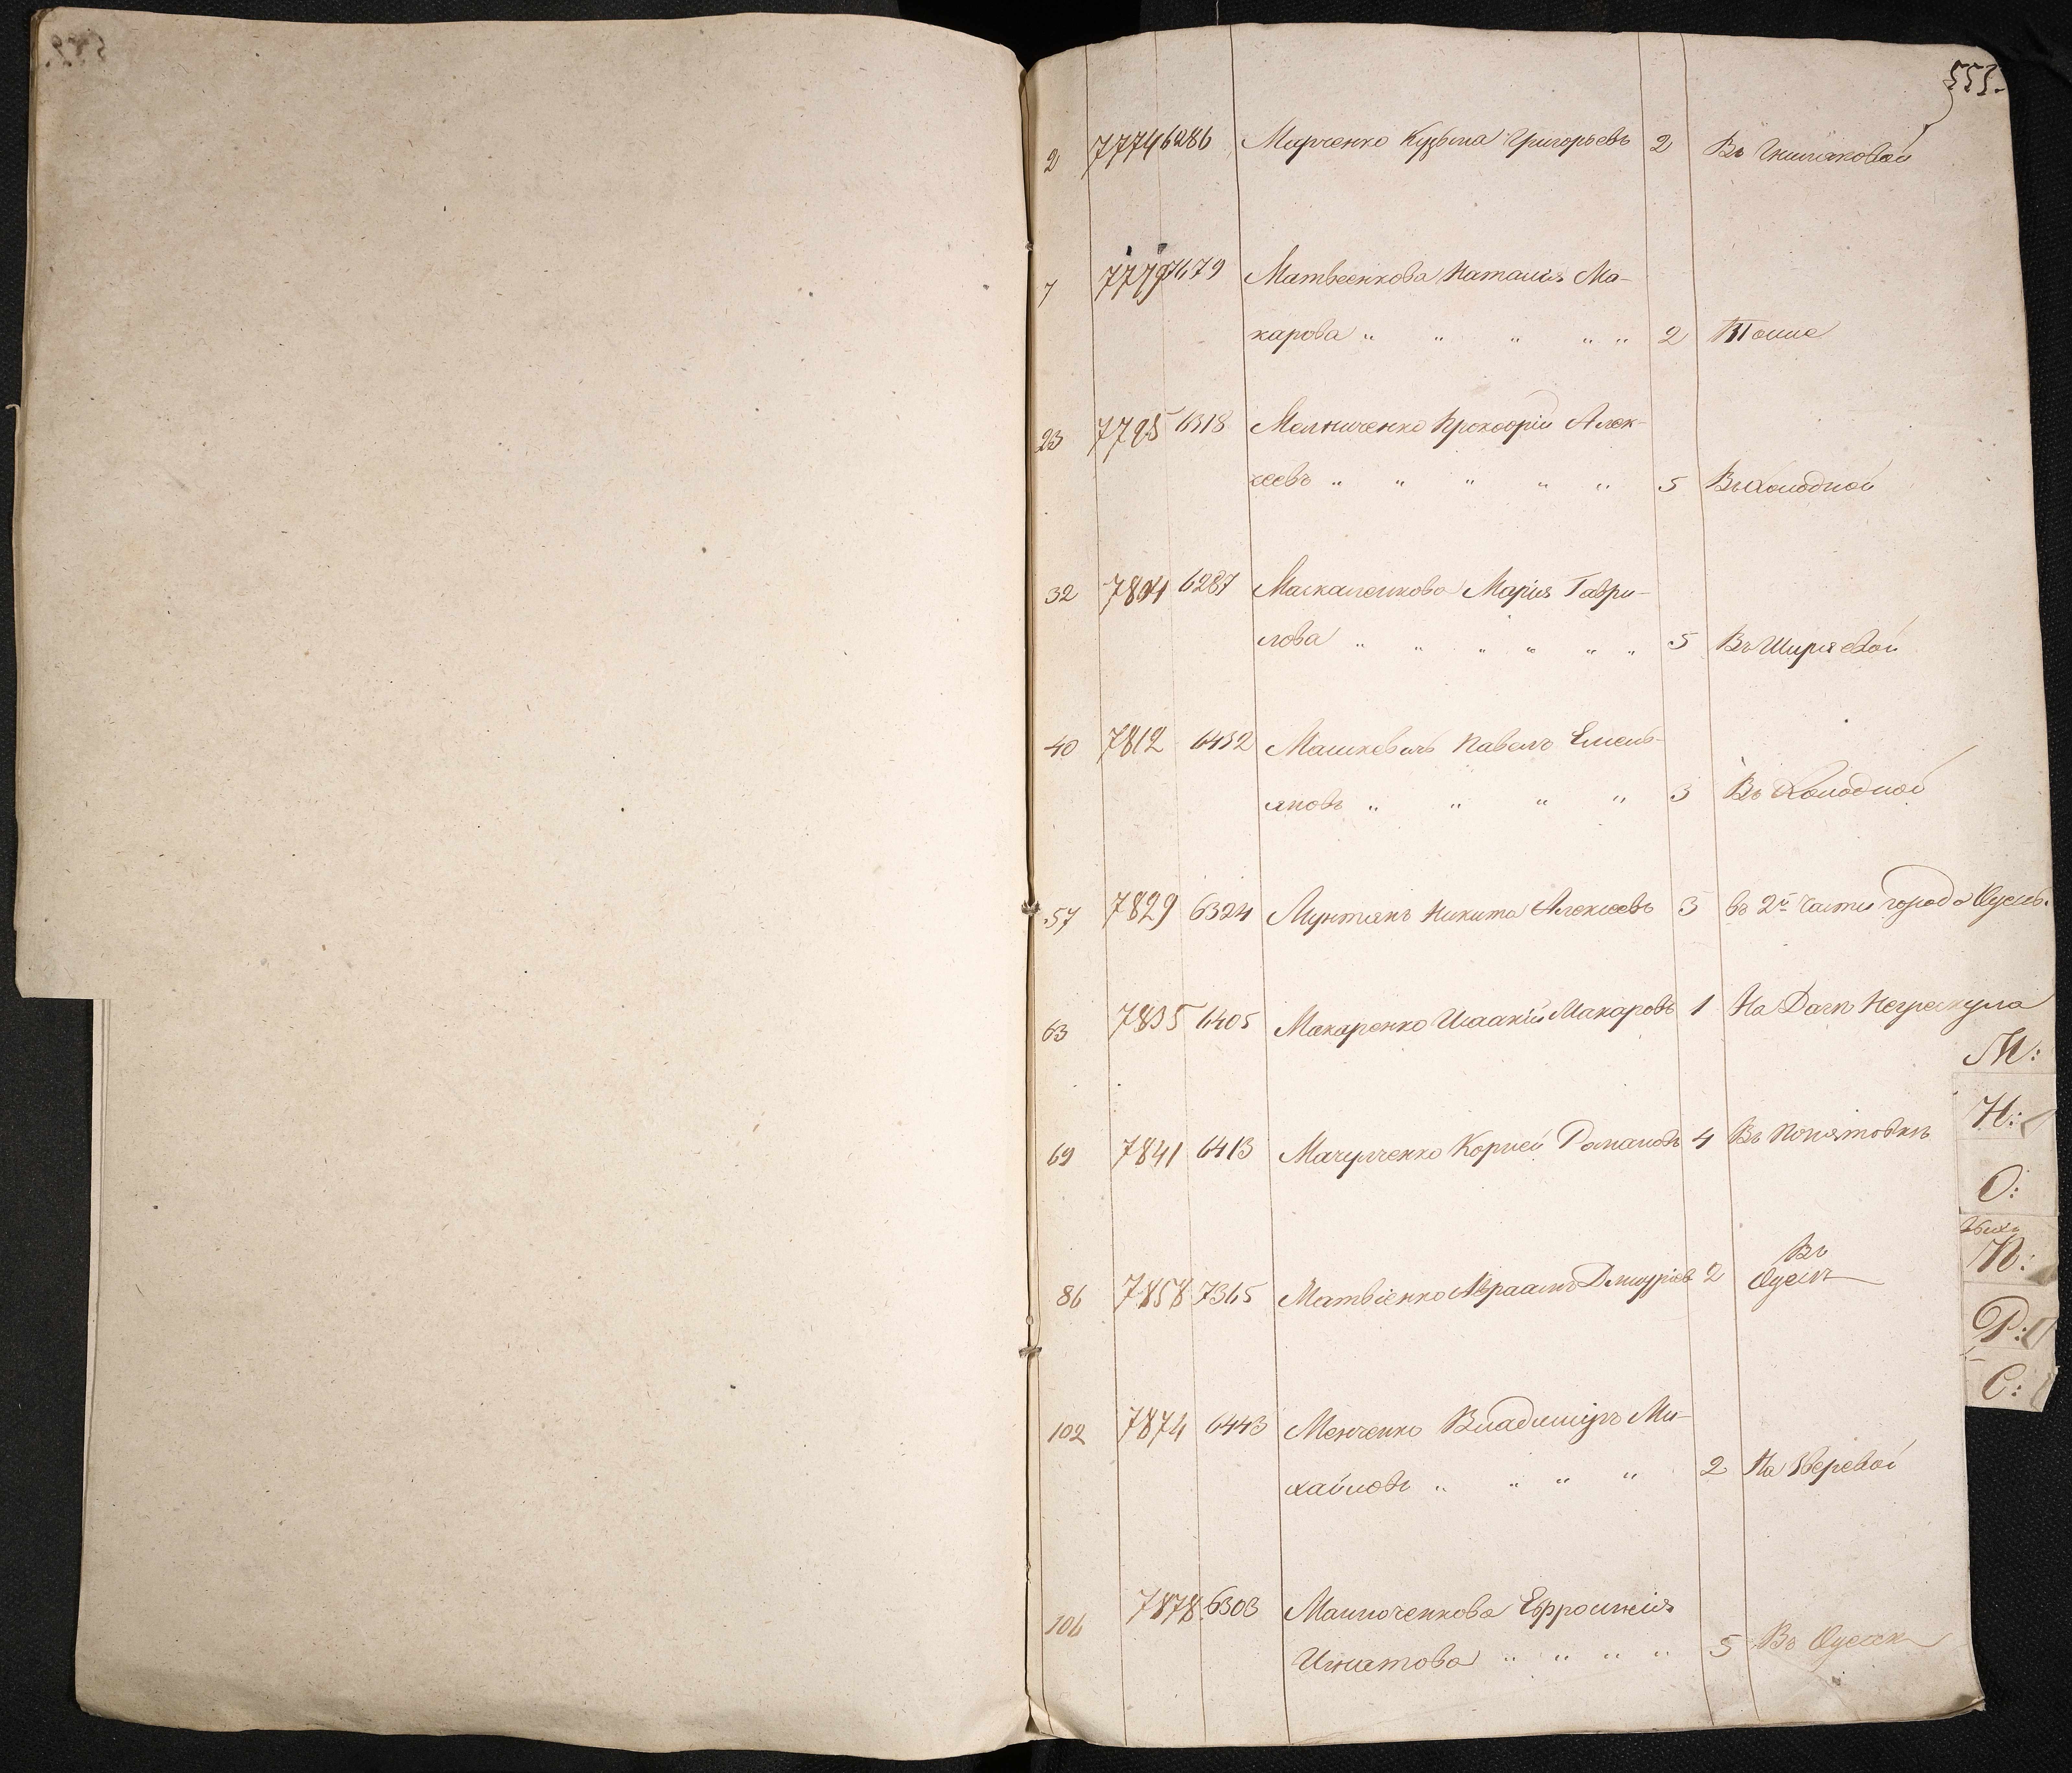 553.
2 7774 6286 Марченко Кузьма Григорьевъ 2 Въ Гниляковой
7 7779 7679 Матвеенкова Наталія Ма-
карова „ „ „ „ „ 2 Тоже
23 7795 6318 Мельниченко Прокофій Алек-
сеевъ „ „ „ „ „ 5 Въ Холодной
32 7804 6287 Маскаленкова Марія Гаври-
лова „ „ „ „ „ „ 5 Въ Ширяевой
40 7812 6432 Машкевичъ Павелъ Емель-
яновъ „ „ „ „ 3 Въ Холодной
57 7829 6324 Мунтянъ Никита Алексеевъ 3 въ 2й части города Одессы.
63 7835 6405 Макаренко Исаакій Макаровъ 1 На Дачѣ Негрескула
М:
Н:
69 7841 6413 Мачулченко Корней Романовъ 4 Въ Понятовкѣ
О:
П:
86 7858 7365 Матвіенко Авраамъ Дмитріев 2 Въ
Одессѣ
Р:
С:
102 7874 6443 Менченко Владимиръ Ми-
хайловъ „ „ „ „ 2 На
106 7878 6303 Манюченкова Евфросинія
Игнатова „ „ „ „ 5 Въ Одессѣ